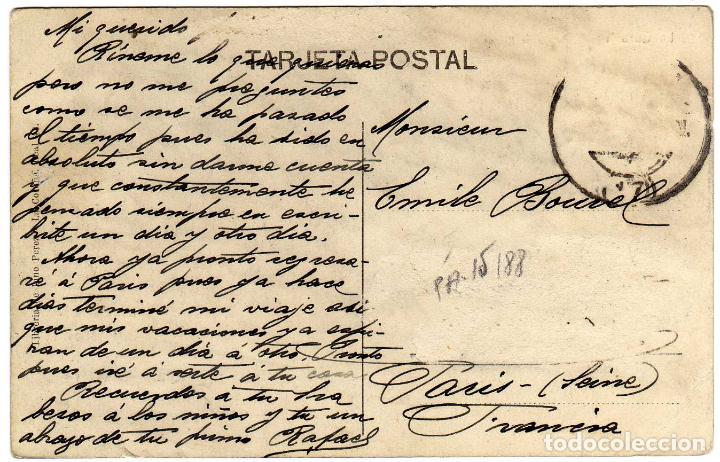 Mi querido
Ríñeme lo que quieras
TARJETA POSTAL
pero no me preguntes
como se me ha pasado
el tiempo pues ha sido en
absoluto sin darme cuenta
y que constantemente he
pensado siempre en escri-
birte un día y otro día.
Ahora ya pronto regresa-
ré á Paris pues ya hace
dias terminé mi viaje asi
que mis vacaciones ya espi-
ran de un dia á otro. Pronto
pues iré á verte á tu casa
Recuerdos á tu
besos á los niños y tu un
abrazo de tu primo Rafael
Monsieur
Emile Bouvel
15188
Paris-(Seine)
Francia
Librería de Lino Perez. La Coruña
todocoleccion